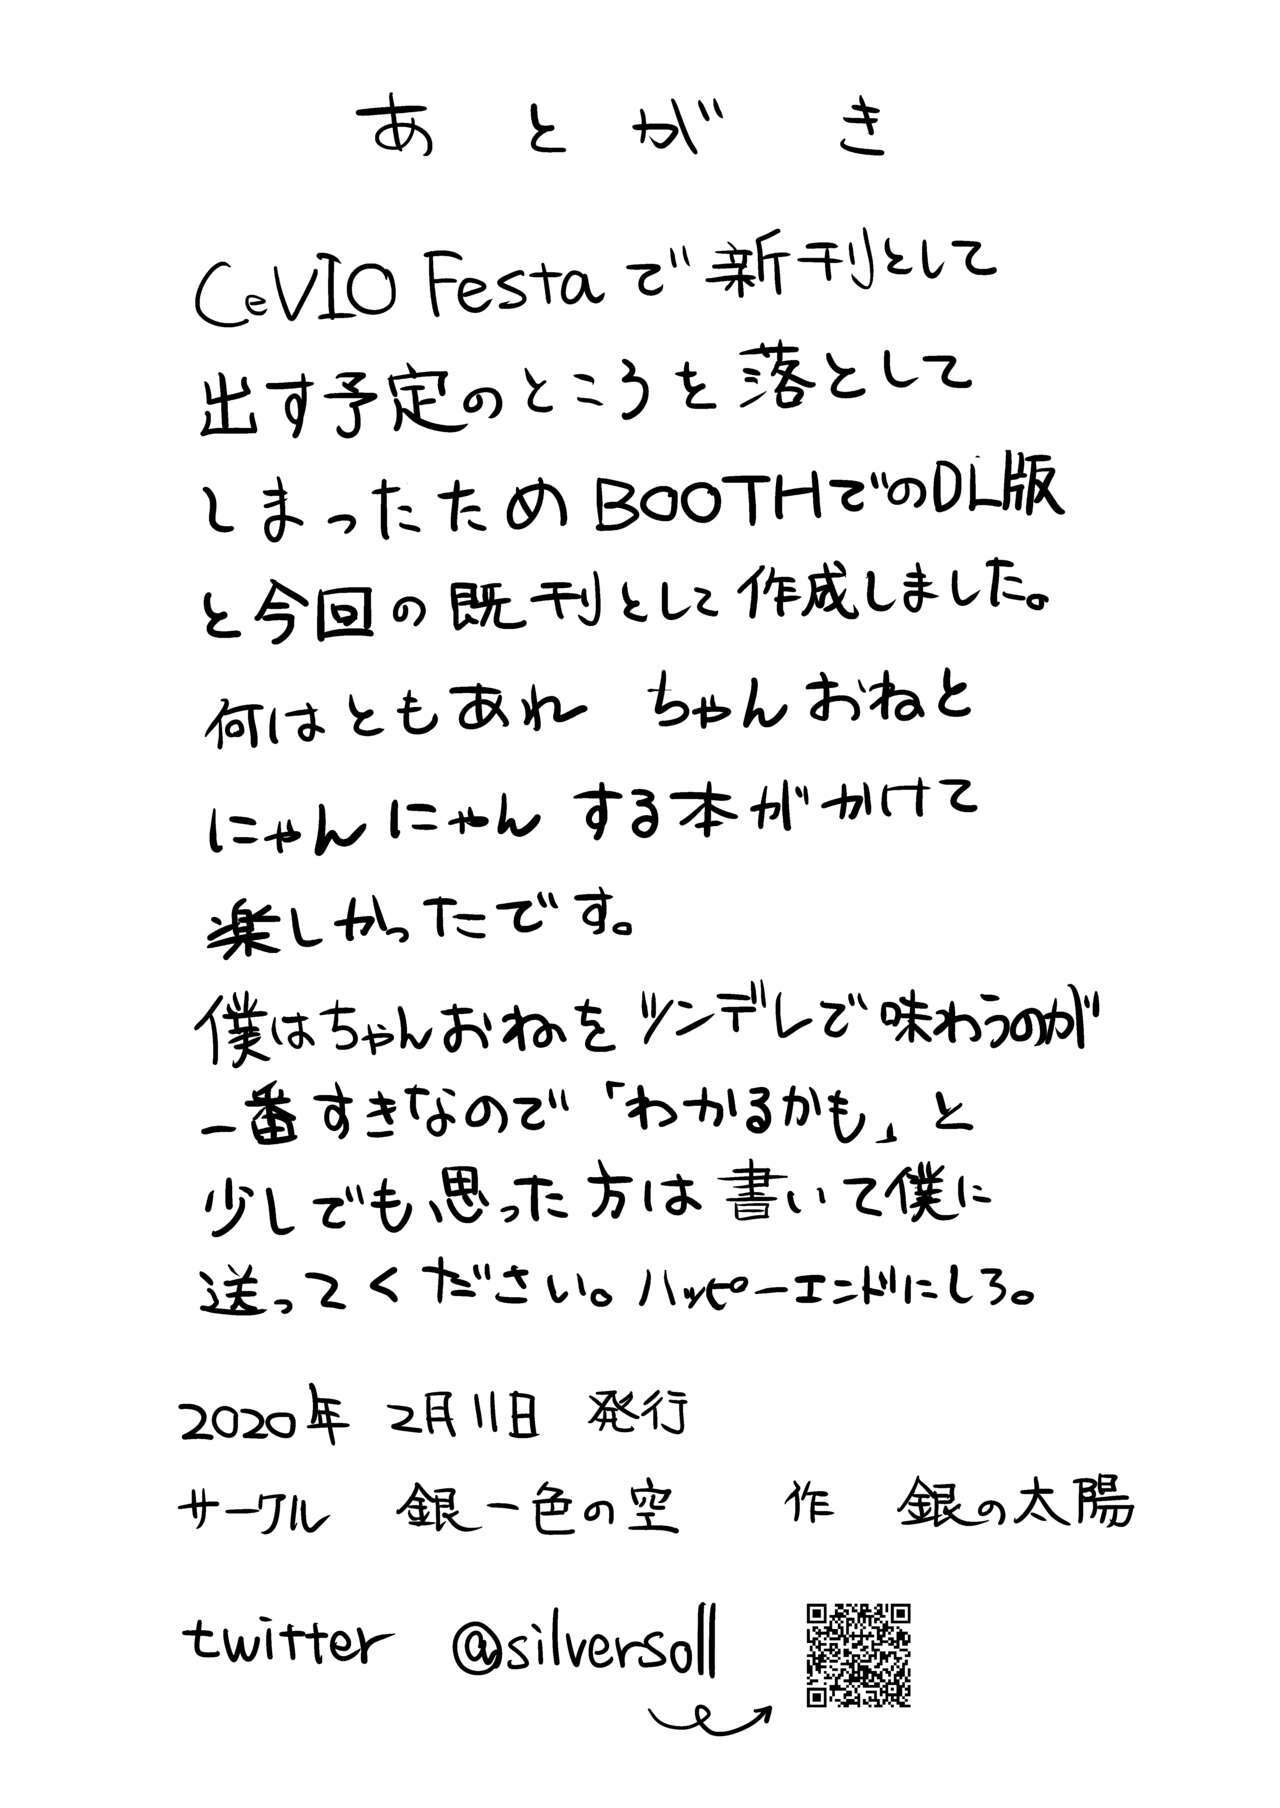 あとがき
CeVIO Festaで新刊として
出す予定のところを落として
しまったためBOOTHでのDL版
と今回の既刊として作成しました。
何はともあれ ちゃんおねと
にゃんにゃんする本がかけて
楽しかったです。
僕はちゃんおねをツンデレで味わうのが
一番すきなので「わかるかも」と
少しでも思った方は書いて僕に
送ってください。ハッピーエンドにしろ。
2020年 2月11日 発行
サークル 銀一色の空 作 銀の太陽
twitter @silversoll